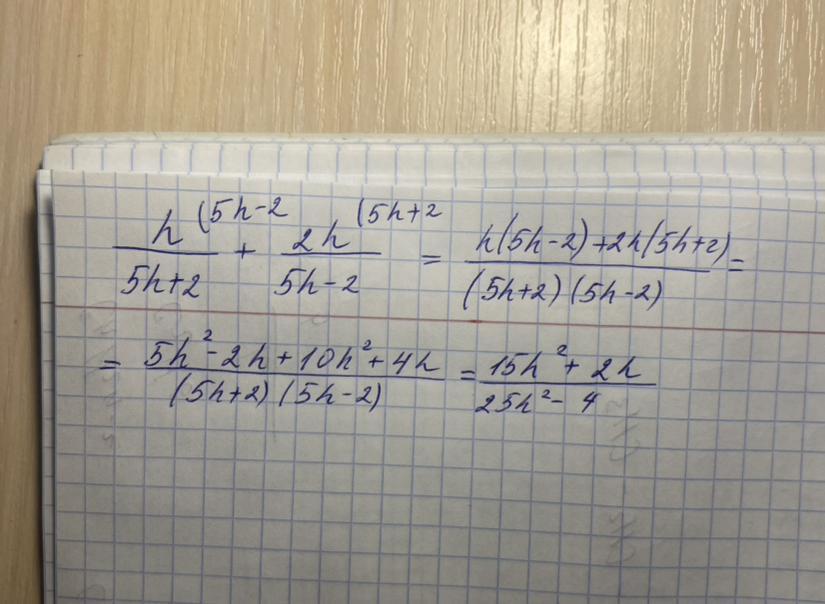 h (5h-2 / 5h+2 + 2h (5h+2 / 5h-2 = h(5h-2)+2h(5h+2) / (5h+2)(5h-2) =
= 5h²-2h+10h²+4h / (5h+2)(5h-2) = 15h²+2h / 25h²-4